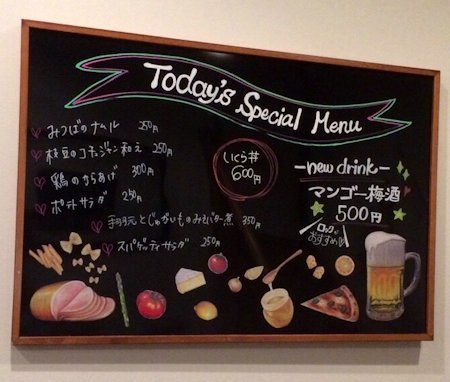 Today's Special Menu
みつばのナムル 250円
枝豆のコチュジャン和え 250円
鶏のからあげ 300円
ポテトサラダ 250円
手羽元とじゃがいものみそバター煮 350円
スパゲッティサラダ 250円
いくら丼
600円
-new drink-
マンゴー梅酒
500円
ロックが
おすすめ!!